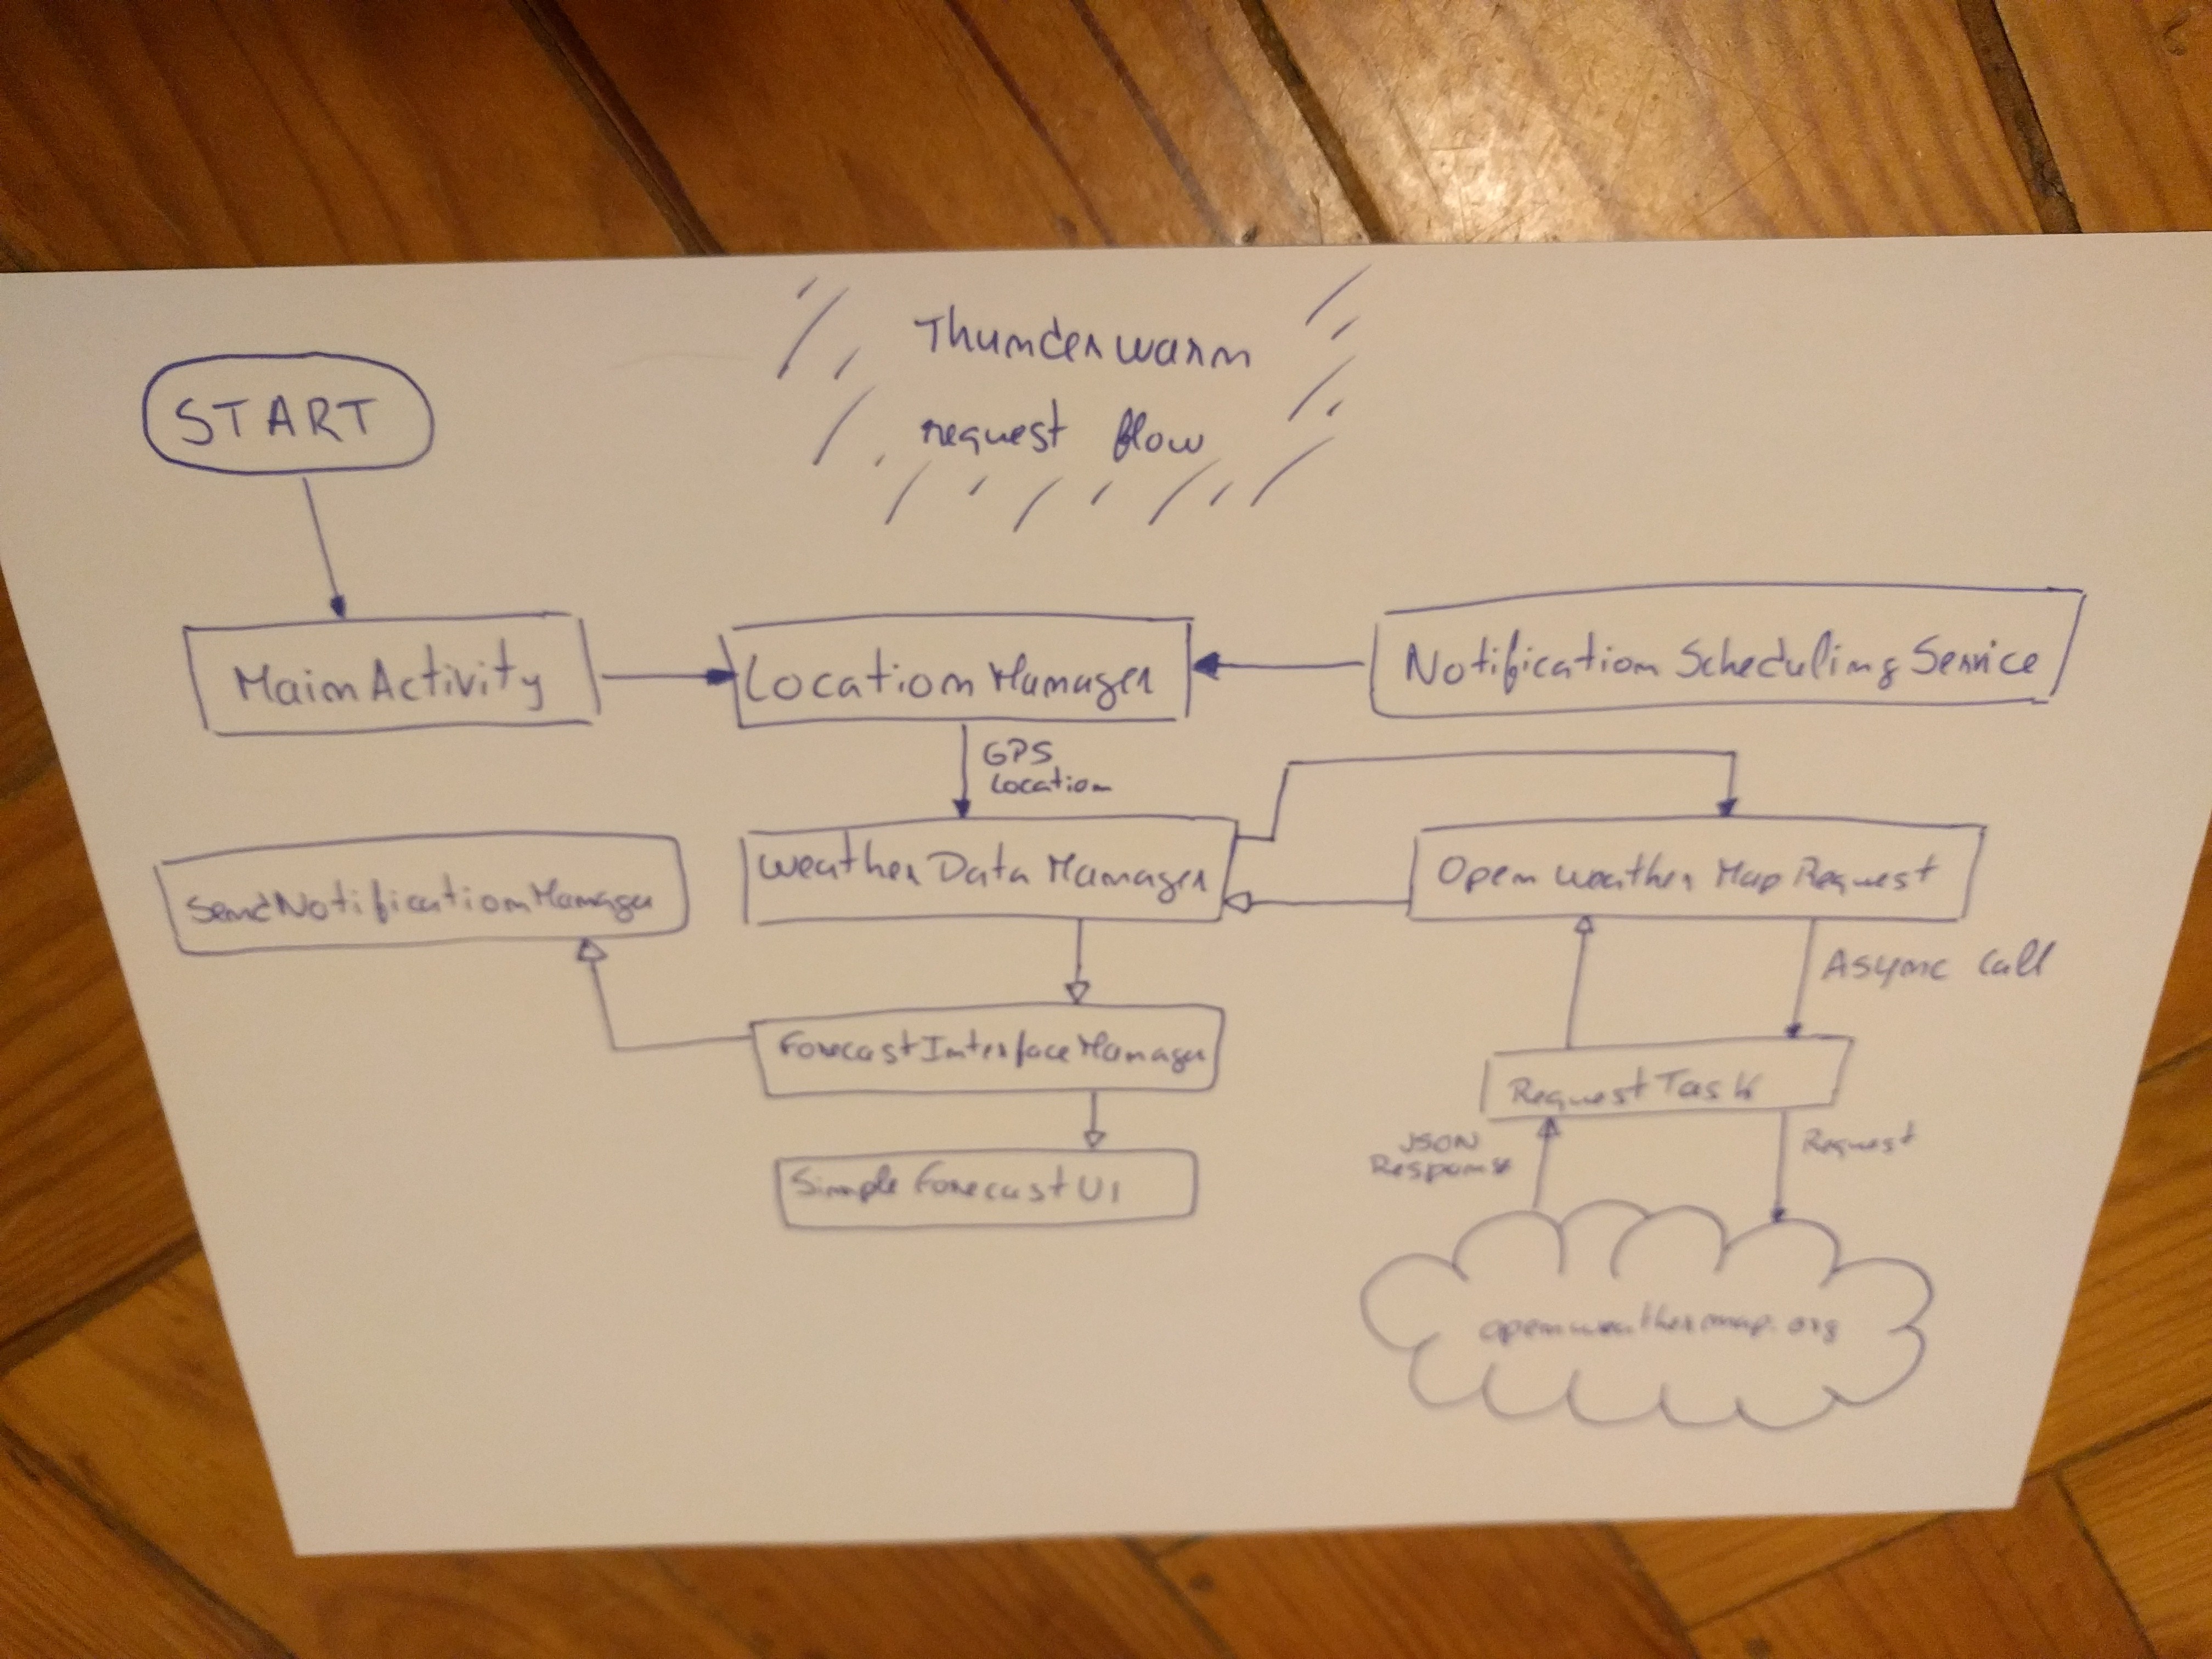 Thunderwarn
request flow
START
MainActivity
LocationManager
NotificationSchedulingService
GPS
Location
SendNotificationManager
WeatherDataManager
OpenWeatherMapRequest
Async Call
ForecastInterfaceManager
RequestTask
JSON
Response
Request
SimpleForecastUI
openweathermap.org